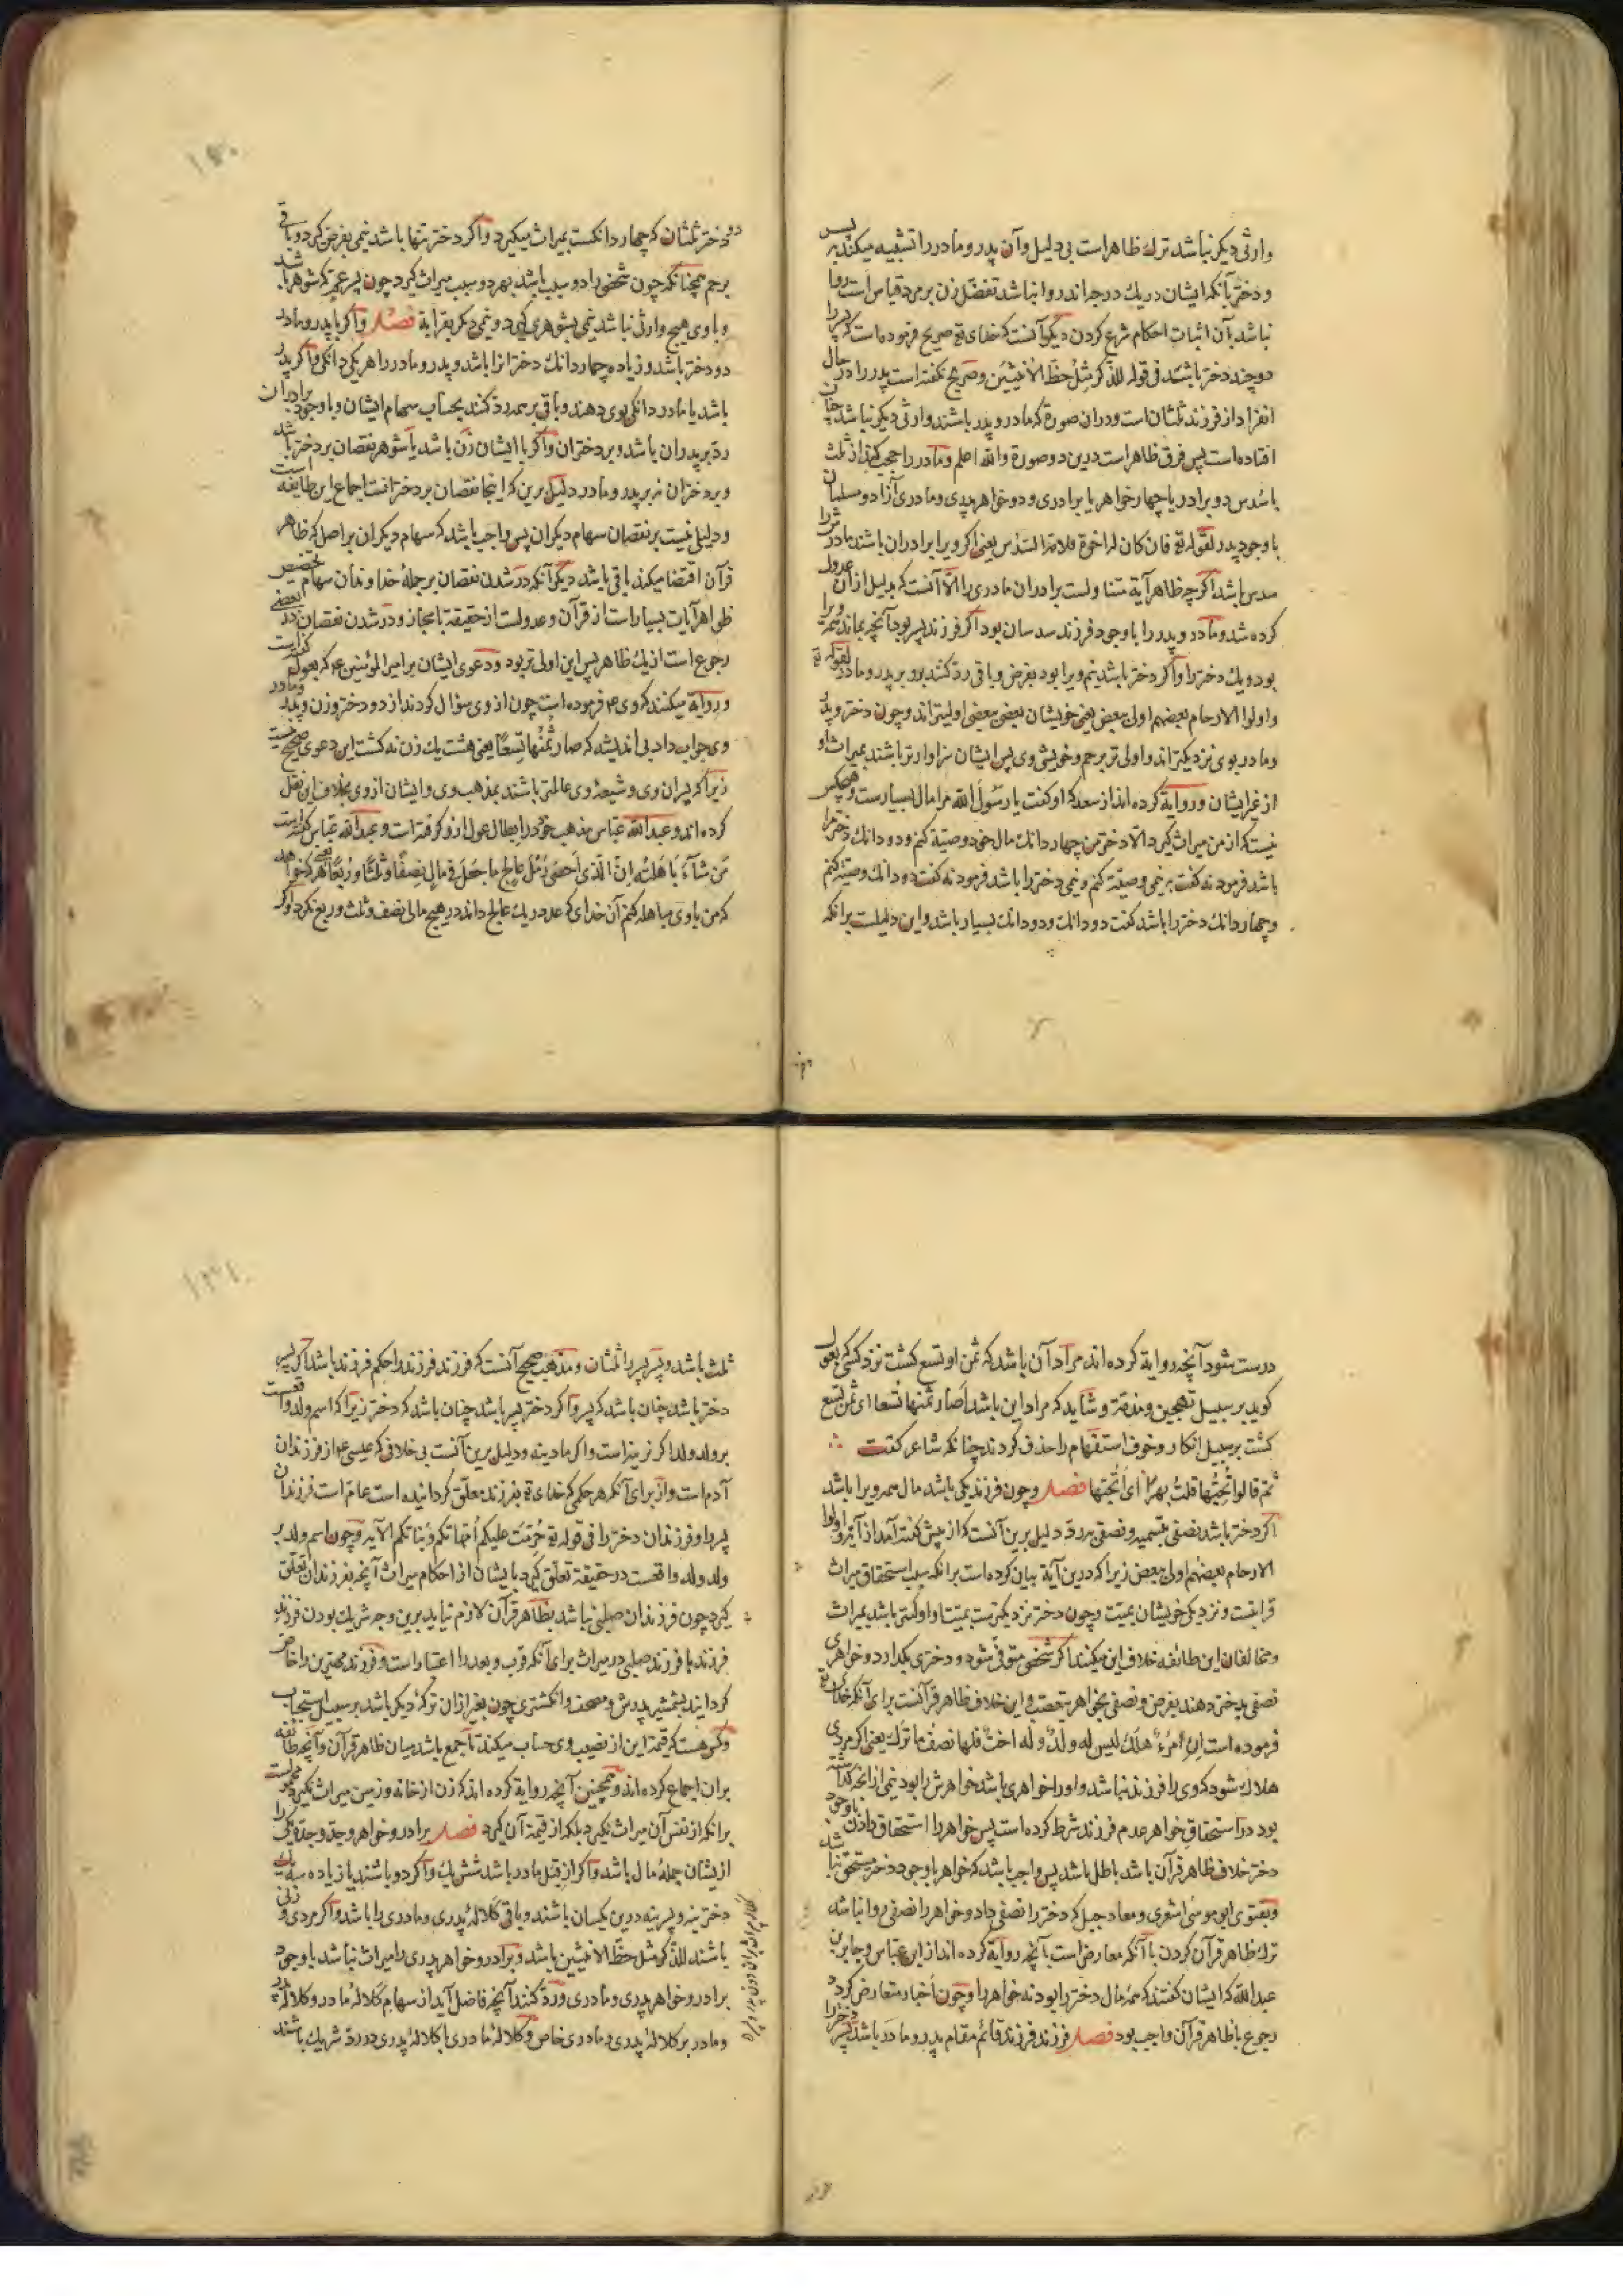 وارثی دیکر نباشد ترك ظاهر است بی دلیل وآن پدر ومادر را تشبیه میکند بپسر
ودختر بآنکه ایشان در یك درجه اند روا نباشد تفضل زن بر مرد قیاس است روا
نباشد بآن اثبات احکام شرع کردن دیکر آنست که خدای تع صریح فرموده است که پسر را
دو چند دختر باشد فی قوله للذکر مثل حظ الانثیین وصریح نکفته است پدر را در حال
انفراد از فرزند ثلثان است ودران صورة که مادر وپدر باشند ووارثی دیکر نباشد چنان
افتاده است پس فرق ظاهر است درین دو صورة والله اعلم ومادر را حجب کنند از ثلث
با سدس دو برادر یا چهار خواهر یا برادری ودو خواهر پدری ومادری آزاد ومسلمان
با وجود پدر لقوله تع فان کان له اخوة فلامه السدس یعنی اکر ویرا برادران باشند مادرش را
سدس باشد اکرچه ظاهر آیة متناولست برادران مادری را الا آنست که بدلیل از آن عدول
کرده شد ومادر وپدر را با وجود فرزند سدسان بود اکر فرزند پسر بود آنچه بماند همه ویرا
بود ویك دختر را واکر دختر باشد نیم ویرا بود بفرض وباقی رد کنند بوو بر پدر ومادر لقوله تع
واولوا الارحام بعضهم اولی ببعض یعنی خویشان بعضی ببعضی اولیتراند وچون دختر وپدر
ومادر بوی نزدیکتراند واولی تر برحم وخویشی وی پس ایشان سزاوارتر باشند بمیراث او
از غیر ایشان وروایة کرده اند از سعد که او کفت یا رسول الله مرا مال بسیارست وهیچکس
نیست که از من میراث کیرد الا دختر من چهار دانك مال خود وصیة کنم ودو دانك دختر را
باشد فرمود نه کفت بر نیمی وصیة کنم ونیمی دختر را باشد فرمود نه کفت دو دانك وصیة کنم
وچهار دانك دختر را باشد کفت دو دانك ودو دانك بسیار باشد واین دلیلست برانکه
دو دختر ثلثان که چهار دانکست بمیراث میکیرد واکر دختر تنها باشد نیمی بفرض کیرد وباقی
برحم همچنانکه چون شخصی را دو سبب باشد بهر دو سبب میراث کیرد چون پسر عم که شوهر باشد
وبا وی هیچ وارثی نباشد نیمی بشوهری کیرد ونیمی دیکر بقرابة فصل واکر با پدر ومادر
دو دختر باشد وزیاده چهار دانك دختران را باشد وپدر ومادر را هر یکی دانکی واکر پدر
باشد یا مادر دانکی بوی دهند وباقی بر همه رد کنند بحساب سهام ایشان وبا وجود برادران
رد بر پدران باشد وبر دختران واکر با ایشان زن باشد یا شوهر نقصان بر دختر باشد
وبر دختران نه بر پدر ومادر دلیل برین که اینجا نقصان بر دخترانست اجماع این طایفه است
ودلیلی نیست بر نقصان سهام دیکران پس واجب باشد که سهام دیکران بر اصل که ظاهر
قرآن اقتضا میکند باقی باشد دیکر آنکه در شدن نقصان بر جملۀ خداوندان سهام تخصیص
ظواهر آیات بسیار است از قرآن وعدولست از حقیقة با مجاز ودر شدن نقصان در بعضی
رجوع است از یك ظاهر پس این اولی تر بود ودعوی ایشان بر امیر المؤمنین ع که بعول کفته است
وروایة میکنند که وی ع فرموده است چون از وی سؤال کردند از دو دختر وزن وپدر ومادر
وی جواب داد بی اندیشه که صار ثمنها تسعا یعنی هشت یك زن نه کشت این دعوی صحیح نیست
زیرا که پسران وی وشیعۀ وی عالمتر باشند بمذهب وی وایشان از وی بخلاف این نقل
کرده اند وعبد الله عباس مذهب خود در ابطال عول از وکرفته است وعبد الله عباس کفته است
من شاء باهلته ان الذی احصی رمل عالج ما جعل فی مال نصفا وثلثا وربعا یعنی هر که خواهد
که من با وی مباهله کنم آن خدای که عدد ریك عالج داند در هیچ مالی نصف وثلث وربع نکرد واکر
درست شود آنچه روایة کرده اند مراد آن باشد که ثمن او تسع کشت نزد کسی که بعول
کوید بر سبیل تهجین ومذمة وشاید که مراد این باشد أصار ثمنها تسعا ای ثمن تسع
کشت بر سبیل انکار وحرف استفهام را حذف کردند چنانکه شاعر کفت
ثم قالوا تحبها قلت بهرا ای أتحبها فصل وچون فرزند یکی باشد مال همه ویرا باشد
اکر دختر باشد نصفی بتسمیه ونصفی برد دلیل برین آنست که از پیش کفته آمد از آیة واولوا
الارحام بعضهم اولی ببعض زیرا که درین آیة بیان کرده است برانکه سبب استحقاق میراث
قرابتست ونزدیکی خویشان بمیت وچون دختر نزدیکترست بمیت او اولی باشد بمیراث
ومخالفان این طائفه خلاف این میکنند اکر شخصی متوفی شود ودختری بکذارد وخواهری
نصفی بدختر دهند بفرض ونصفی بخواهر بتعصیب واین خلاف ظاهر قرآنست برای آنکه خدای تع
فرموده است ان امرؤ هلك لیس له ولد وله اخت فلها نصف ما ترك یعنی اکر مردی
هلاك شود که وی را فرزند نباشد واورا خواهری باشد خواهرش را بود نیمی از آنچه کذاشته
بود در استحقاق خواهر عدم فرزند شرط کرده است پس خواهر را استحقاق دادن با وجود
دختر خلاف ظاهر قرآن باشد باطل باشد پس واجب باشد که خواهر با وجود دختر مستحق نباشد
وبفتوی ابو موسی اشعری ومعاد جبل که دختر را نصفی داد وخواهر را نصفی روا نباشد
ترك ظاهر قرآن کردن با آنکه معارض است بآنچه روایة کرده اند از ابن عباس وجابر بن
عبد الله که ایشان کفتند که همه مال دختر را بود نه خواهر را وچون اخبار متعارض کرد
رجوع با ظاهر قرآن واجب بود فصل فرزند فرزند قائم مقام پدر ومادر باشد پسر دختر را
ثلث باشد وپسر پسر را ثلثان ومذهب صحیح آنست که فرزند فرزند را حکم فرزند باشد اکر پسر
دختر باشد چنان باشد که پسر واکر دختر پسر باشد چنان باشد که دختر زیرا که اسم ولد واقعست
بر ولد ولد اکر نرینه است واکر مادینه ودلیل برین آنست بی خلافی که عیسی ع از فرزندان
آدم است واز برای آنکه هر حکمی که خدای تع بفرزند معلق کردانیده است عام است فرزندان
پسر را وفرزندان دختر را فی قوله تع حرمت علیکم امهاتکم وبناتکم الآیه وچون اسم ولد بر
ولد ولد واقعست در حقیقة تعلق کیرد بایشان از احکام میراث آنچه بفرزندان تعلق
کیرد چون فرزندان صلبی نباشد بظاهر قرآن لازم نیاید برین وجه شریك بودن فرزند
فرزند با فرزند صلبی در میراث برای آنکه قرب وبعد را اعتبار است وفرزند مهترین را خاص
کردانید بشمشیر پدرش ومصحف وانکشتری چون بغیر ازان ترکۀ دیکر باشد بر سبیل استحباب
وکس هست که قیمة این از نصیب وی حساب میکند تا جمع باشد میان ظاهر قرآن وآنچه طائفه
بران اجماع کرده اند وهمچنین آنچه روایة کرده اند که زن از خانه وزمین میراث نکیرد محمولست
برانکه از نفس آن میراث نکیرد بلکه از قیمة آن کیرد فصل برادر وخواهر وجد وجده یکی را
ازیشان جملۀ مال باشد واکر از قبل مادر باشد شش یك واکر دو باشند یا زیاده سه یك
دخترینه وپسرینه درین یکسان باشند وباقی کلالۀ پدری ومادری را باشد واکر مردی وزنی
باشند للذکر مثل حظ الانثیین باشد وبرادر وخواهر پدری را میراث نباشد با وجود
برادر وخواهر پدری ومادری ورد کنند آنچه فاضل آید از سهام کلالۀ مادر وکلالۀ پدر
ومادر بر کلالۀ پدری ومادری خاص وکلالۀ مادری با کلالۀ پدری در رد شریك باشند